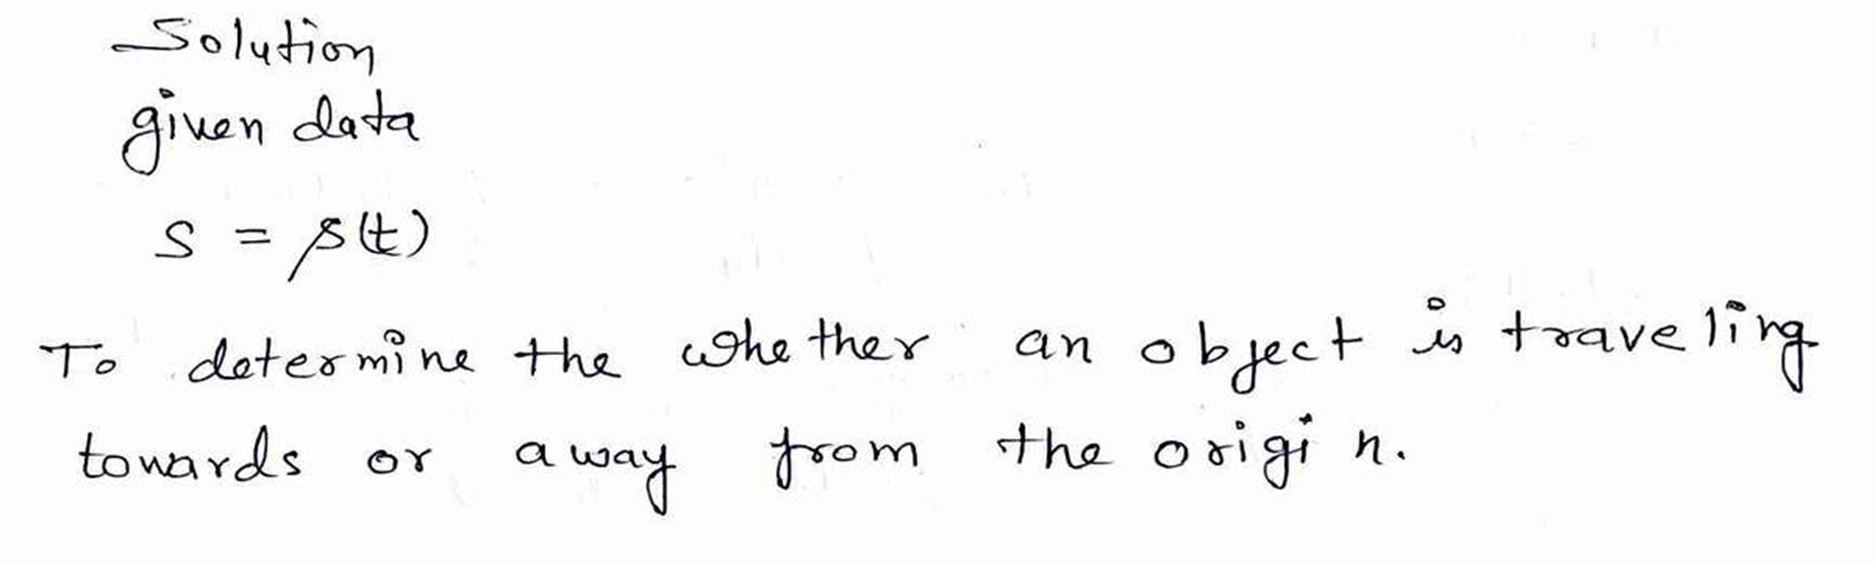 Solution
given data
S = s(t)
To determine the whether an object is traveling
towards or away from the origin.